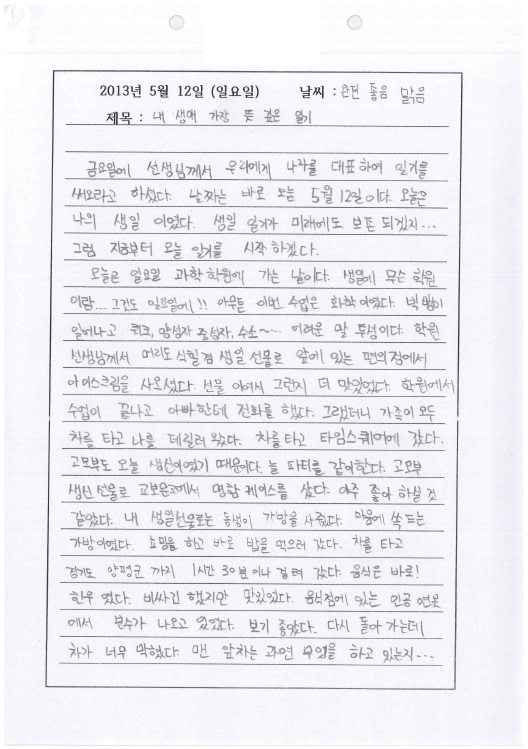 2013년 5월 12일 (일요일) 날씨 : 완전 좋음 맑음
제목 : 내 생애 가장 뜻 깊은 일기
금요일에 선생님께서 우리에게 나라를 대표하여 일기를
써오라고 하셨다. 날짜는 바로 오늘 5월 12일이다. 오늘은
나의 생일 이였다. 생일 일기가 미래에도 보존 되겠지...
그럼 지금부터 오늘 일기를 시작 하겠다.
오늘은 일요일 과학학원에 가는 날이다. 생일에 무슨 학원
이람... 그것도 일요일에!! 아무튼 이번 수업은 화학이였다. 빅뱅이
일어나고 쿼크, 양성자 중성자, 수소~... 어려운 말 투성이다. 학원
선생님께서 머리도 식힐 겸 생일 선물로 앞에 있는 편의점에서
아이스크림을 사오셨다. 선물 이어서 그런지 더 맛있었다. 학원에서
수업이 끝나고 아빠한테 전화를 했다. 그랬더니 가족이 모두
차를 타고 나를 데릴러 왔다. 차를 타고 타임스퀘어에 갔다.
고모부도 오늘 생신이였기 때문이다. 늘 파티를 같이한다. 고모부
생신 선물로 교보문고에서 명함 케이스를 샀다. 아주 좋아 하실 것
같았다. 내 생일선물로는 동생이 가방을 사줬다. 마음에 쏙 드는
가방이였다. 쇼핑을 하고 바로 밥을 먹으러 갔다. 차를 타고
경기도 양평군 까지 1시간 30분이나 걸려 갔다. 음식은 바로!
한우 였다. 비싸긴 했지만 맛있었다. 음식점에 있는 인공 연못
에서 분수가 나오고 있었다. 보기 좋았다. 다시 돌아 가는데
차가 너무 막혔다. 맨 앞차는 과연 무엇을 하고 있는지...